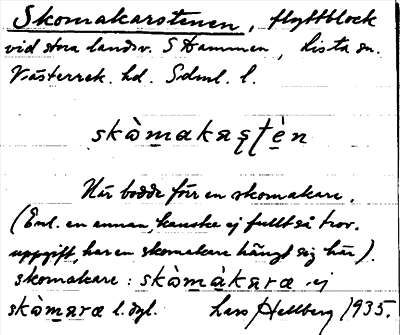 Skomakarstenen, flyttblock
vid stora landsv. S Hammen, Lista sn.
Västerrek. hd. Sdml. l.
skòmakaʂʈèn
Här bodde förr en skomakare.
(Enl. en annan, kanske ej fullt så trov.
uppgift, har en skomakare hängt sig här).
skomakare: skòmàkaræ ej
skòmaræ l. dyl. Lars Hellberg 1935.